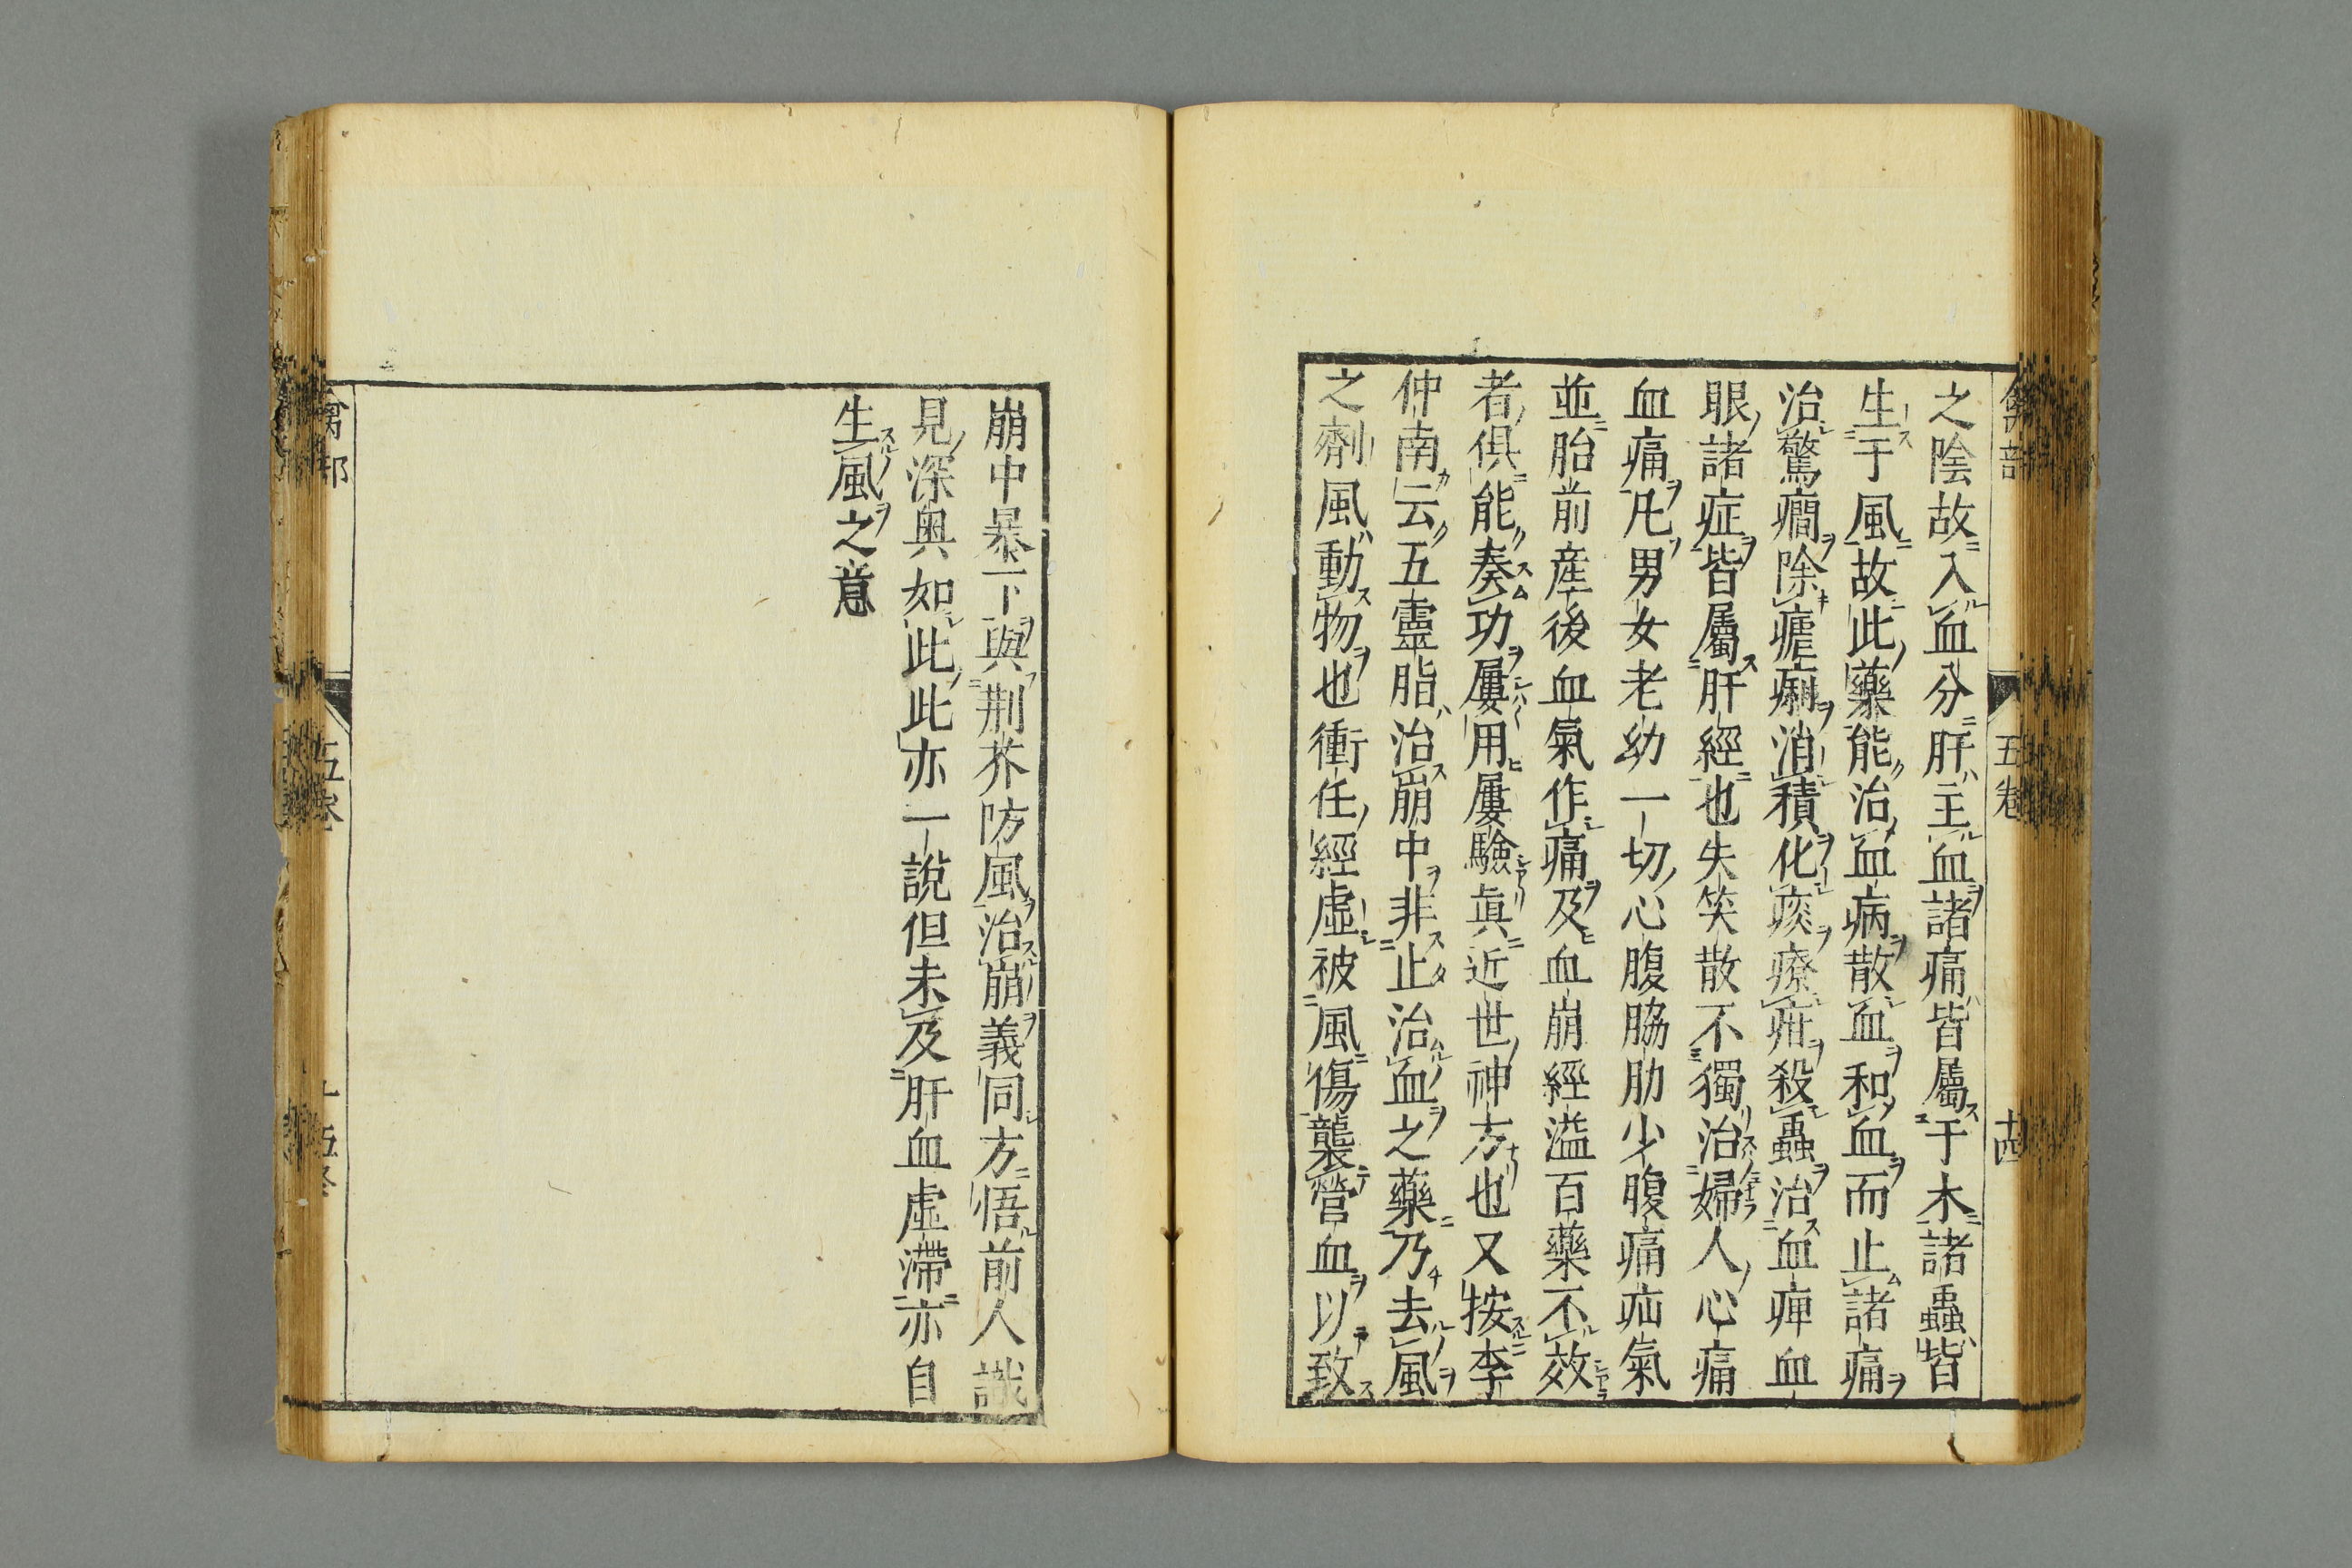 禽部 五卷 十四
之陰故入血分肝主血諸痛皆屬于木諸蟲皆
生于風故此藥能治血病散血和血而止諸痛
治驚癇除瘧痢消積化痰療疳殺蟲治血痺血
眼諸症皆屬肝經也失笑散不獨治婦人心痛
血痛凡男女老幼一切心腹脇肋少腹痛疝氣
並胎前産後血氣作痛及血崩經溢百藥不效
者俱能奏功屢用屢驗眞近世神方也又按李
仲南云五靈脂治崩中非止治血之藥乃去風
之劑風動物也衝任經虛被風傷襲營血以致
崩中暴下與荆芥防風治崩義同方悟前人識
見深奥如此此亦一說但未及肝血虛滯亦自
生風之意
禽部 五卷